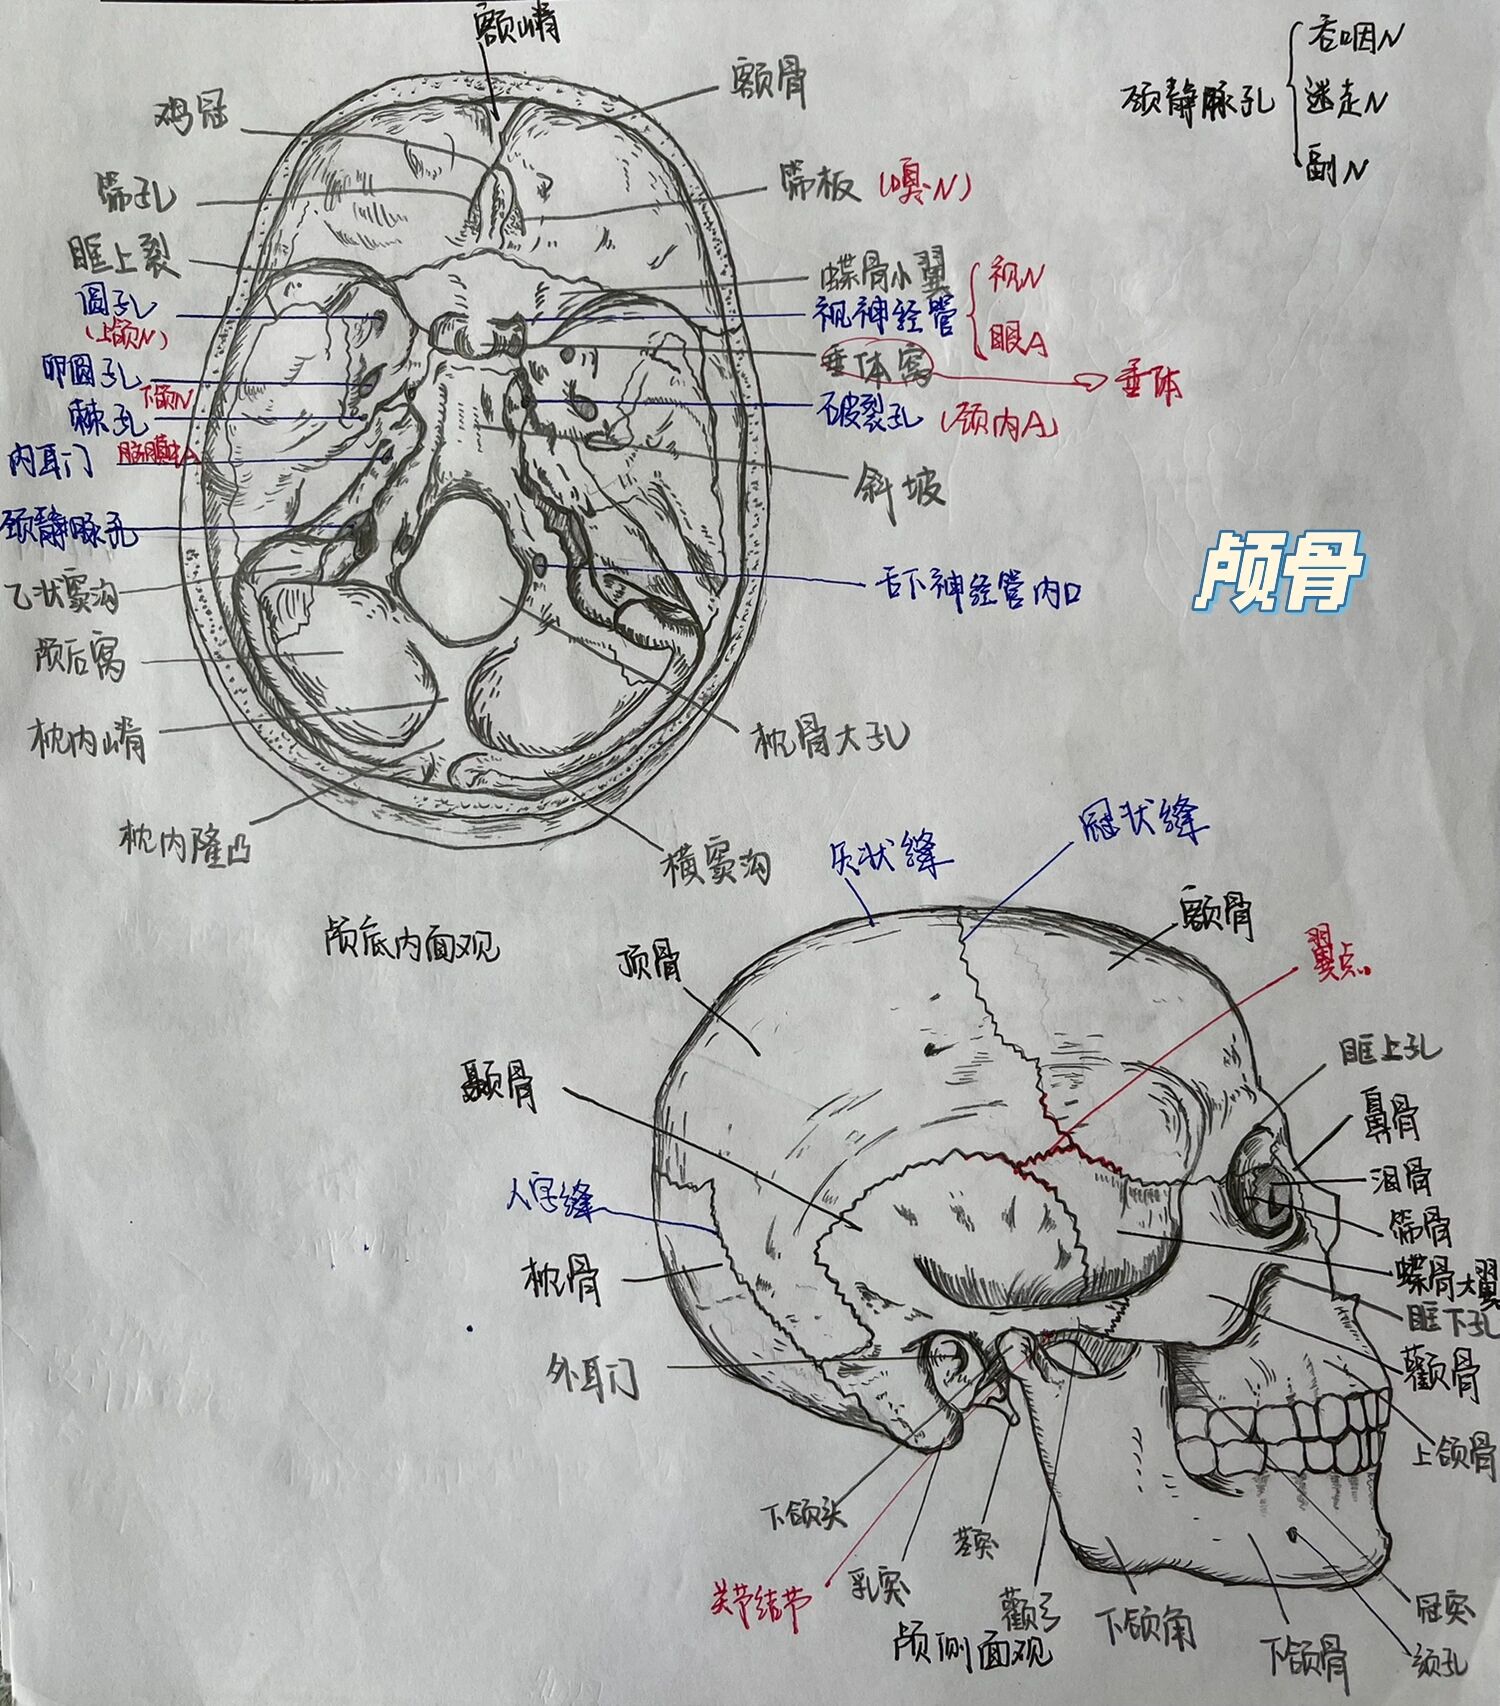 额嵴
额骨
鸡冠
筛孔
筛板(嗅N)
眶上裂
蝶骨小翼
圆孔
(上颌N)
视神经管
视N
眼A
垂体窝
垂体
卵圆孔
下颌N
棘孔
破裂孔(颈内A)
内耳门
脑膜中A
斜坡
颈静脉孔
舌下神经管内口
乙状窦沟
颅后窝
枕内嵴
枕骨大孔
枕内隆凸
横窦沟
颅底内面观
颈静脉孔
舌咽N
迷走N
副N
颅骨
矢状缝
冠状缝
额骨
顶骨
翼点
颞骨
眶上孔
鼻骨
泪骨
人字缝
筛骨
枕骨
蝶骨大翼
眶下孔
外耳门
颧骨
上颌骨
下颌头
茎突
关节结节
乳突
颧弓
下颌角
下颌骨
冠突
颏孔
颅侧面观